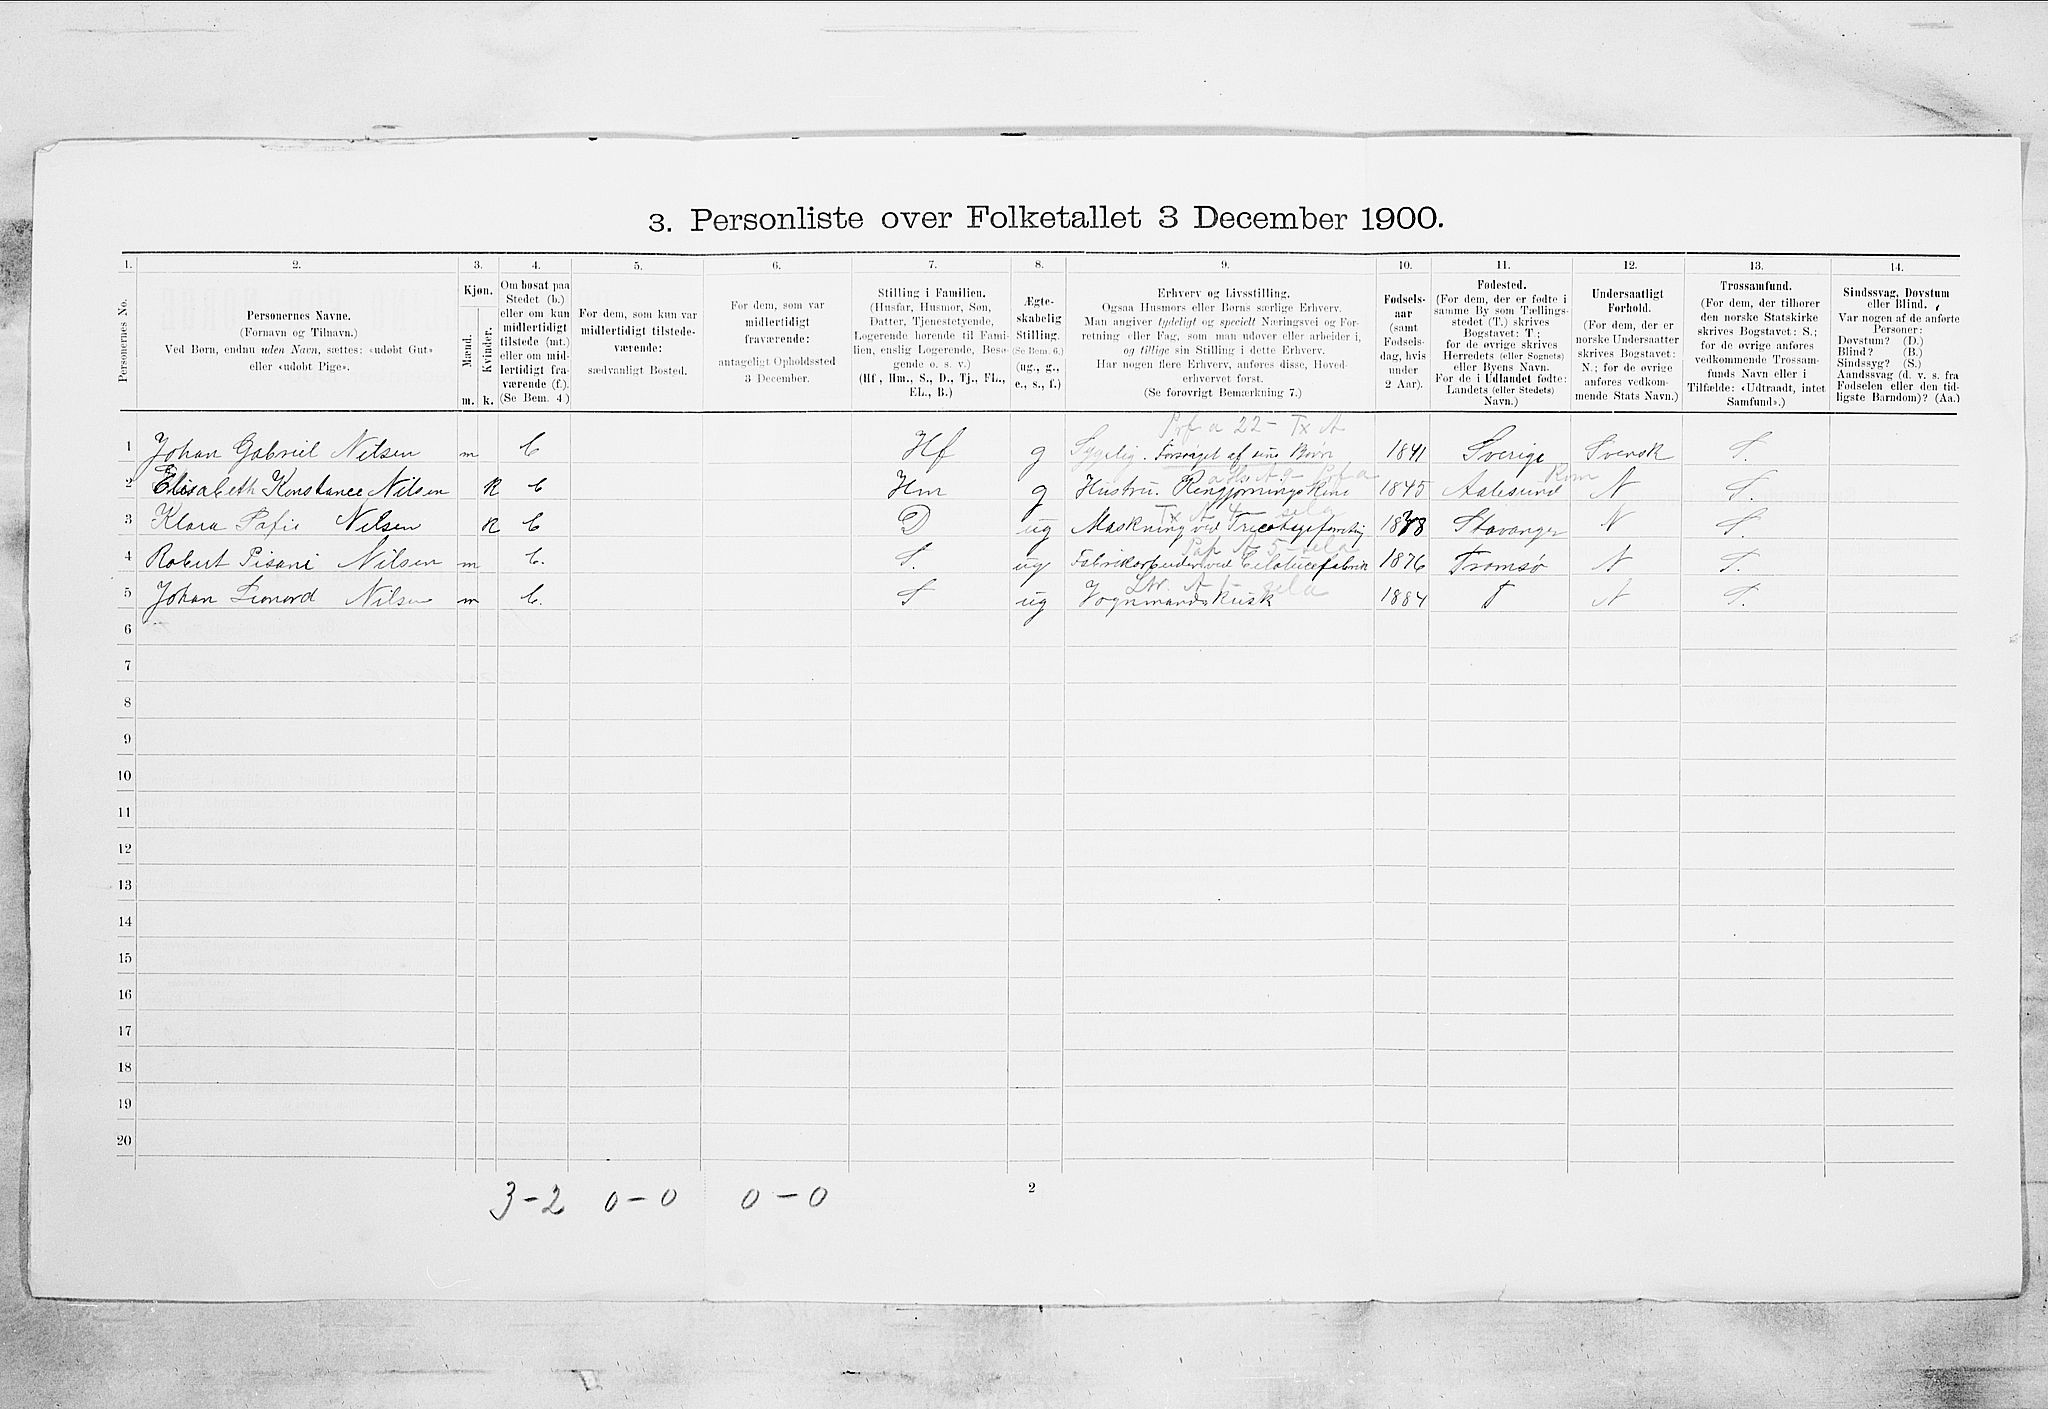 3. Personliste over Folketallet 3 December 1900.
1. 2. 3. 4. 5. 6. 7. 8. 9. 10. 11. 12. 13. 14.
Personernes No.
Personernes Navne.
(Fornavn og Tilnavn.)
Ved Børn, endnu uden Navn, sættes: «udøbt Gut»
eller «udøbt Pige».
Kjøn.
Mænd.
Kvinder.
m. k.
Om bosat paa
Stedet (b.)
eller om kun
midlertidigt
tilstede (mt.)
eller om mid-
lertidigt fra-
værende (f.).
(Se Bem. 4.)
For dem, som kun var
midlertidigt tilstede-
værende:
sædvanligt Bosted.
For dem, som var
midlertidigt
fraværende:
antageligt Opholdssted
3 December.
Stilling i Familien.
(Husfar, Husmor, Søn,
Datter, Tjenestetyende,
Logerende hørende til Fami-
lien, enslig Logerende, Besø-
gende o. s. v.)
(Hf., Hm., S., D., Tj., FL.,
EL., B.)
Ægte-
skabelig
Stilling.
(Se Bem. 6.)
(ug., g.,
e., s., f.)
Erhverv og Livsstilling.
Ogsaa Husmors eller Børns særlige Erhverv.
Man angiver tydeligt og specielt Næringsvei og For-
retning eller Fag, som man udøver eller arbeider i,
og tillige sin Stilling i dette Erhverv.
Har nogen flere Erhverv, anføres disse, Hoved-
erhvervet først.
(Se forøvrigt Bemærkning 7.)
Fødsels-
aar
(samt
Fødsels-
dag, hvis
under
2 Aar).
Fødested.
(For dem, der er fødte i
samme By som Tællings-
stedet (T.) skrives
Bogstavet: T;
for de øvrige skrives
Herredets (eller Sognets)
eller Byens Navn.
For de i Udlandet fødte:
Landets (eller Stedets)
Navn.)
Undersaatligt
Forhold.
(For dem, der er
norske Undersaatter
skrives Bogstavet:
N.; for de øvrige
anføres vedkom-
mende Stats Navn.)
Trossamfund.
(For dem, der tilhører
den norske Statskirke
skrives Bogstavet: S.;
for de øvrige anføres
vedkommende Trossam-
funds Navn eller i
Tilfælde: «Udtraadt, intet
Samfund».)
Sindssvag, Døvstum
eller Blind.
Var nogen af de anførte
Personer:
Døvstum? (D.)
Blind? (B.)
Sindssyg? (S.)
Aandssvag (d. v. s. fra
Fødselen eller den tid-
ligste Barndom)? (Aa.)
1 Johan Gabriel Nilsen m b Hf g Sygelig. Forsørget af sine Børn 1841 Sverige Svensk S.
2 Elisabeth Konstance Nilsen k b Hm g Hustru. Rengjørningskone 1845 Aalesund N S.
3 Klara Nilsen k b D ug 18 8 Stavanger N S.
4 Robert Pisani Nilsen m b. S. ug Fabrikarbeider ved 1876 Tromsø N S.
5 Johan Nilsen m b. S ug Vognmandskusk 1884 T N S.
6
7
8
9
10
11
12
13
14
15
16
17
18
19
20
3 - 2 0 - 0 0 - 0
2